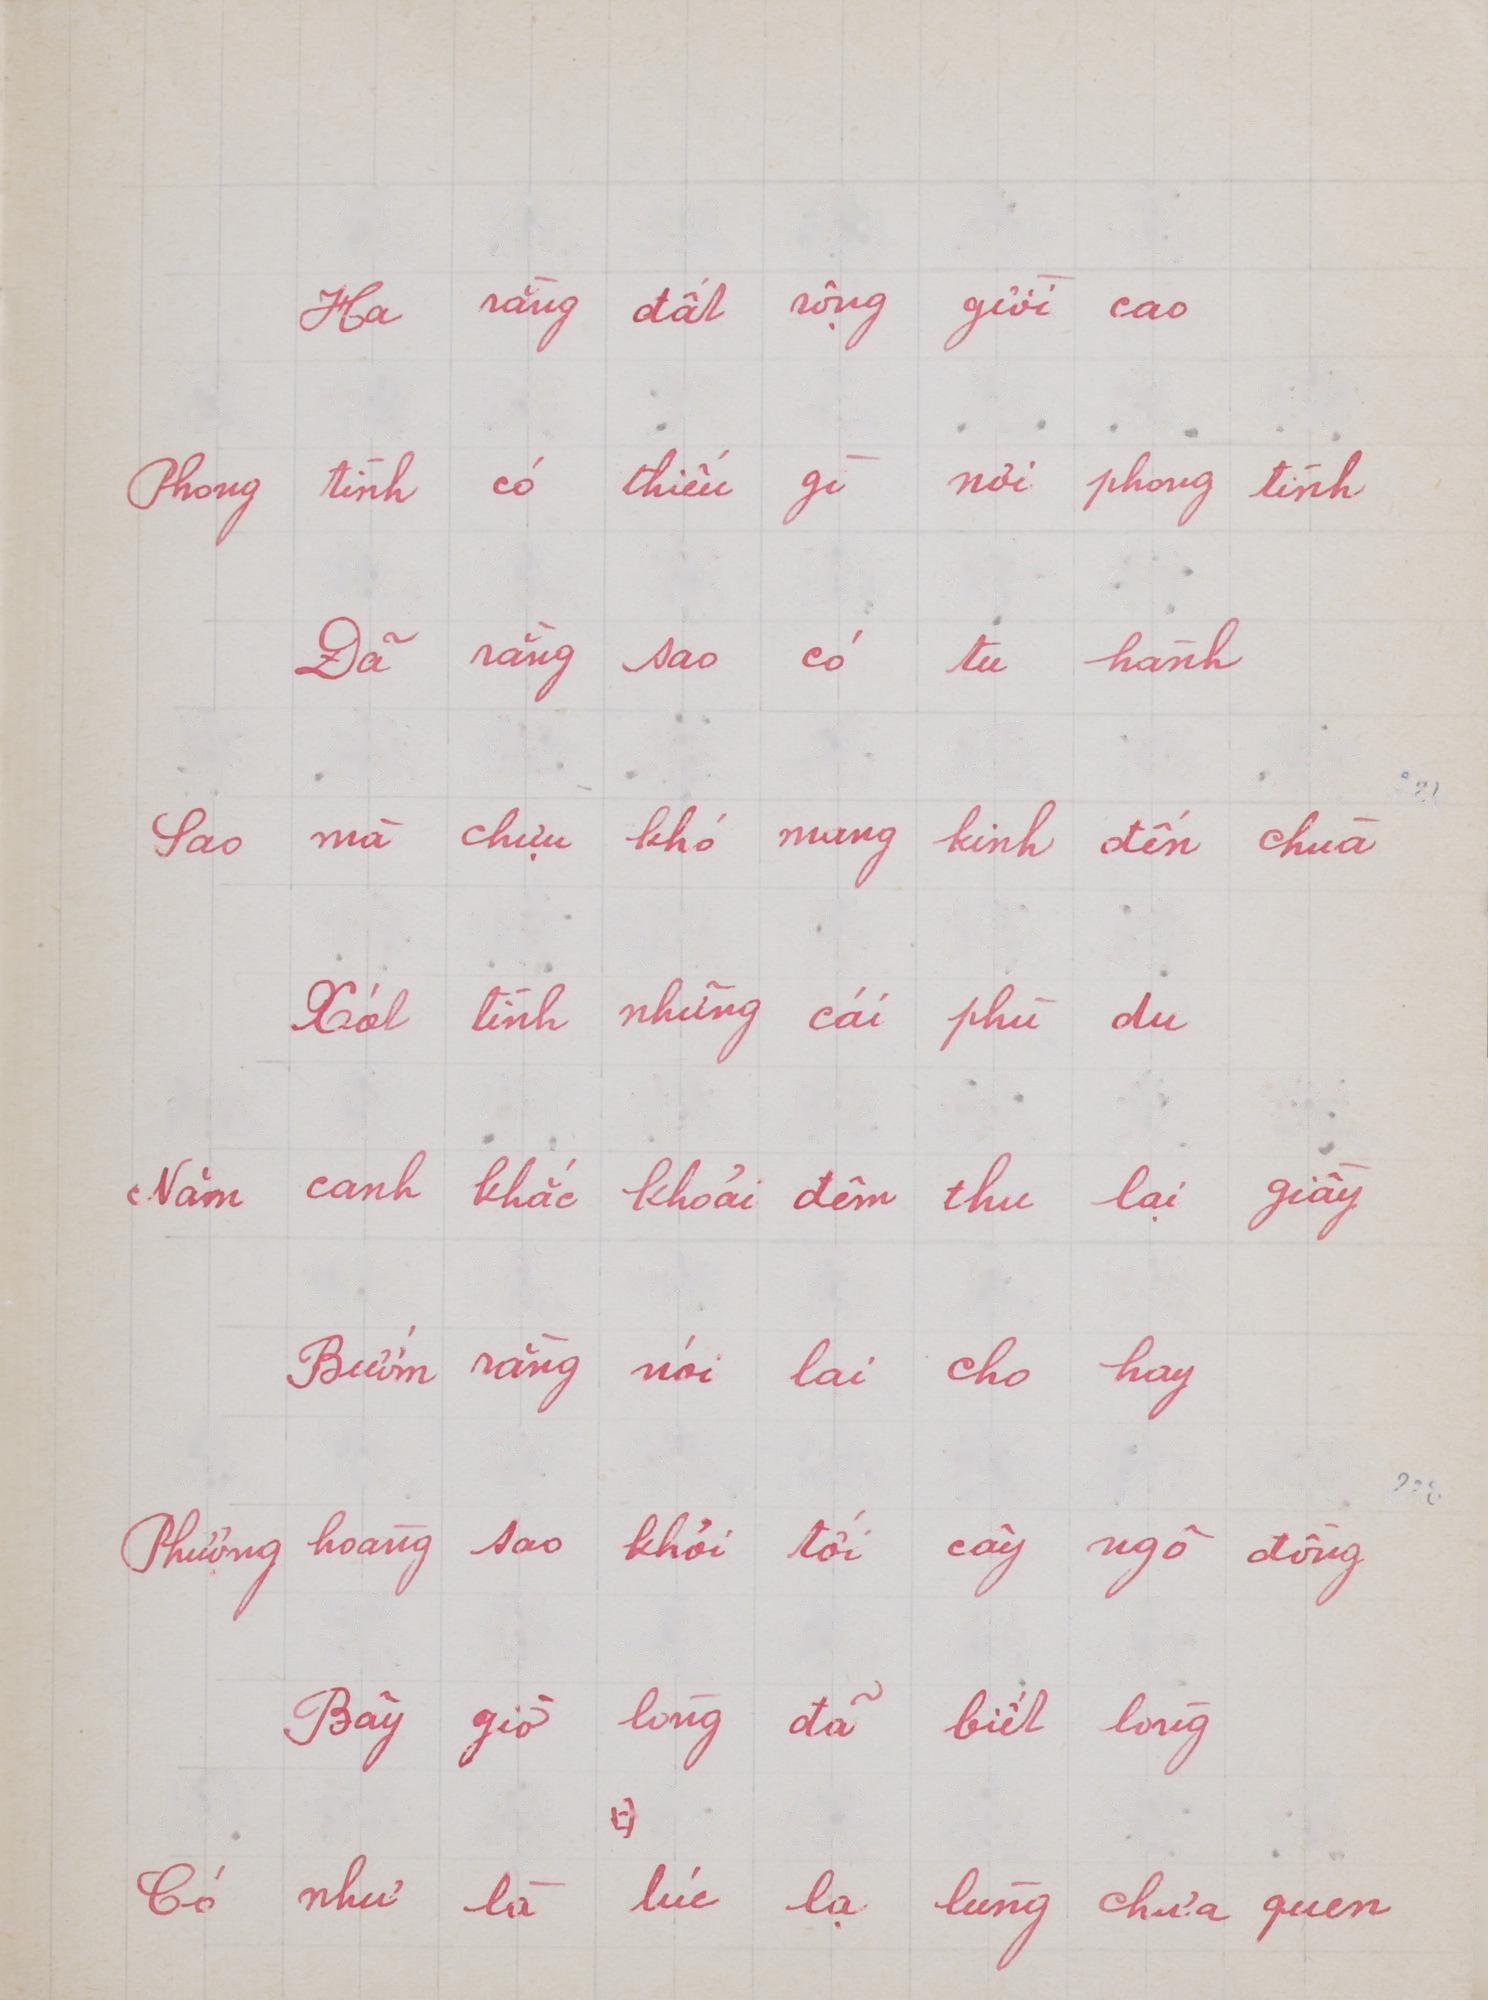 Hoa rằng đất rộng giời cao
Phong tình có thiếu gì nơi phong tình
Đã rằng sao có tu hành
Sao mà chựu khó mang kinh đến chùa
Xót tình những cái phù du
Năm canh khắc khoải đêm thu lại giầy
Bướm rằng nói lai cho hay
Phượng hoàng sao khỏi tới cây ngô đồng
Bây giờ lòng đã biết lòng
Có như là lúc lạ lùng chưa quen